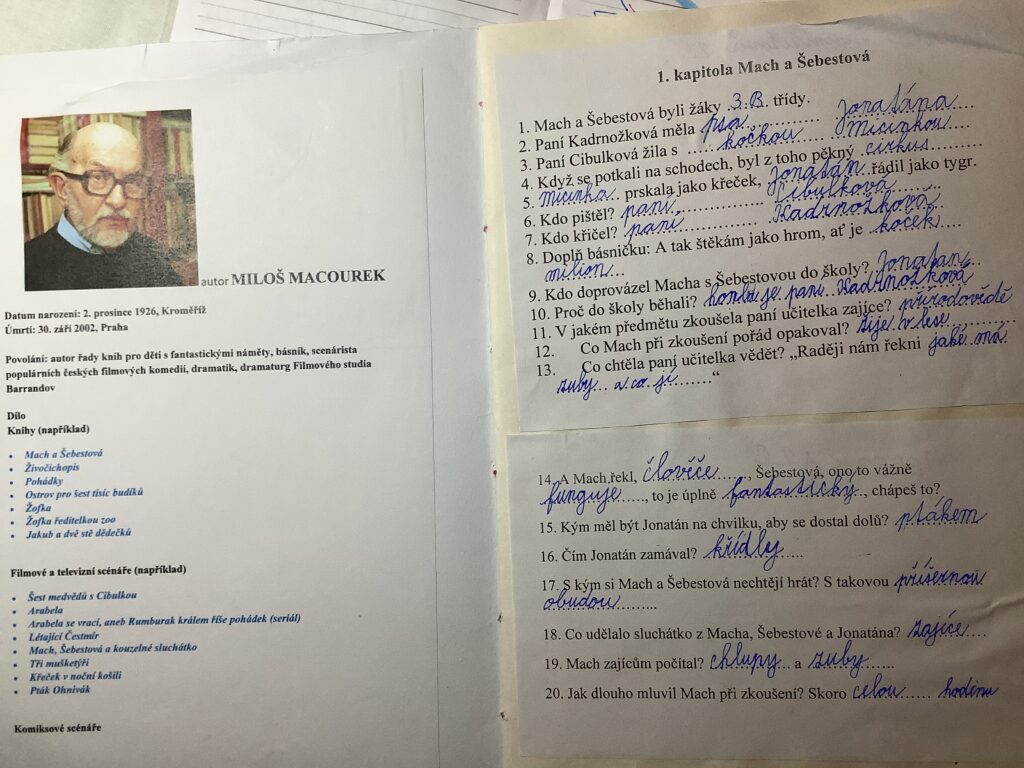 autor MILOŠ MACOUREK
Datum narození: 2. prosince 1926, Kroměříž
Úmrtí: 30. září 2002, Praha
Povolání: autor řady knih pro děti s fantastickými náměty, básník, scenárista
populárních českých filmových komedií, dramatik, dramaturg Filmového studia
Barrandov
Dílo
Knihy (například)
• Mach a Šebestová
• Živočichopis
• Pohádky
• Ostrov pro šest tisíc budíků
• Žofka
• Žofka ředitelkou zoo
• Jakub a dvě stě dědečků
Filmové a televizní scénáře (například)
• Šest medvědů s Cibulkou
• Arabela
• Arabela se vrací, aneb Rumburak králem říše pohádek (seriál)
• Létající Čestmír
• Mach, Šebestová a kouzelné sluchátko
• Tři mušketýři
• Křeček v noční košili
• Pták Ohnivák
Komiksové scénáře
1. kapitola Mach a Šebestová
1. Mach a Šebestová byli žáky 3.B. třídy.
2. Paní Kadrnožková měla psa Jonatána
3. Paní Cibulková žila s kočkou Micinkou
4. Když se potkali na schodech, byl z toho pěkný cirkus
5. Micinka prskala jako křeček, Jonatán řádil jako tygr.
6. Kdo pištěl? paní Cibulková
7. Kdo křičel? paní Kadrnožková
8. Doplň básničku: A tak štěkám jako hrom, ať je koček
milion
9. Kdo doprovázel Macha s Šebestovou do školy? Jonatan
10. Proč do školy běhali? honila je paní Kadrnožková
11. V jakém předmětu zkoušela paní učitelka zajíce? přírodovědě
12. Co Mach při zkoušení pořád opakoval? žije v lese
13. Co chtěla paní učitelka vědět? „Raději nám řekni jaké má
zuby a co jí“
14. A Mach řekl, člověče, Šebestová, ono to vážně
funguje, to je úplně fantastický, chápeš to?
15. Kým měl být Jonatán na chvilku, aby se dostal dolů? ptákem
16. Čím Jonatán zamával? křídly
17. S kým si Mach a Šebestová nechtějí hrát? S takovou příšernou
obudou
18. Co udělalo sluchátko z Macha, Šebestové a Jonatána? zajíce
19. Mach zajícům počítal? chlupy a zuby
20. Jak dlouho mluvil Mach při zkoušení? Skoro celou hodinu